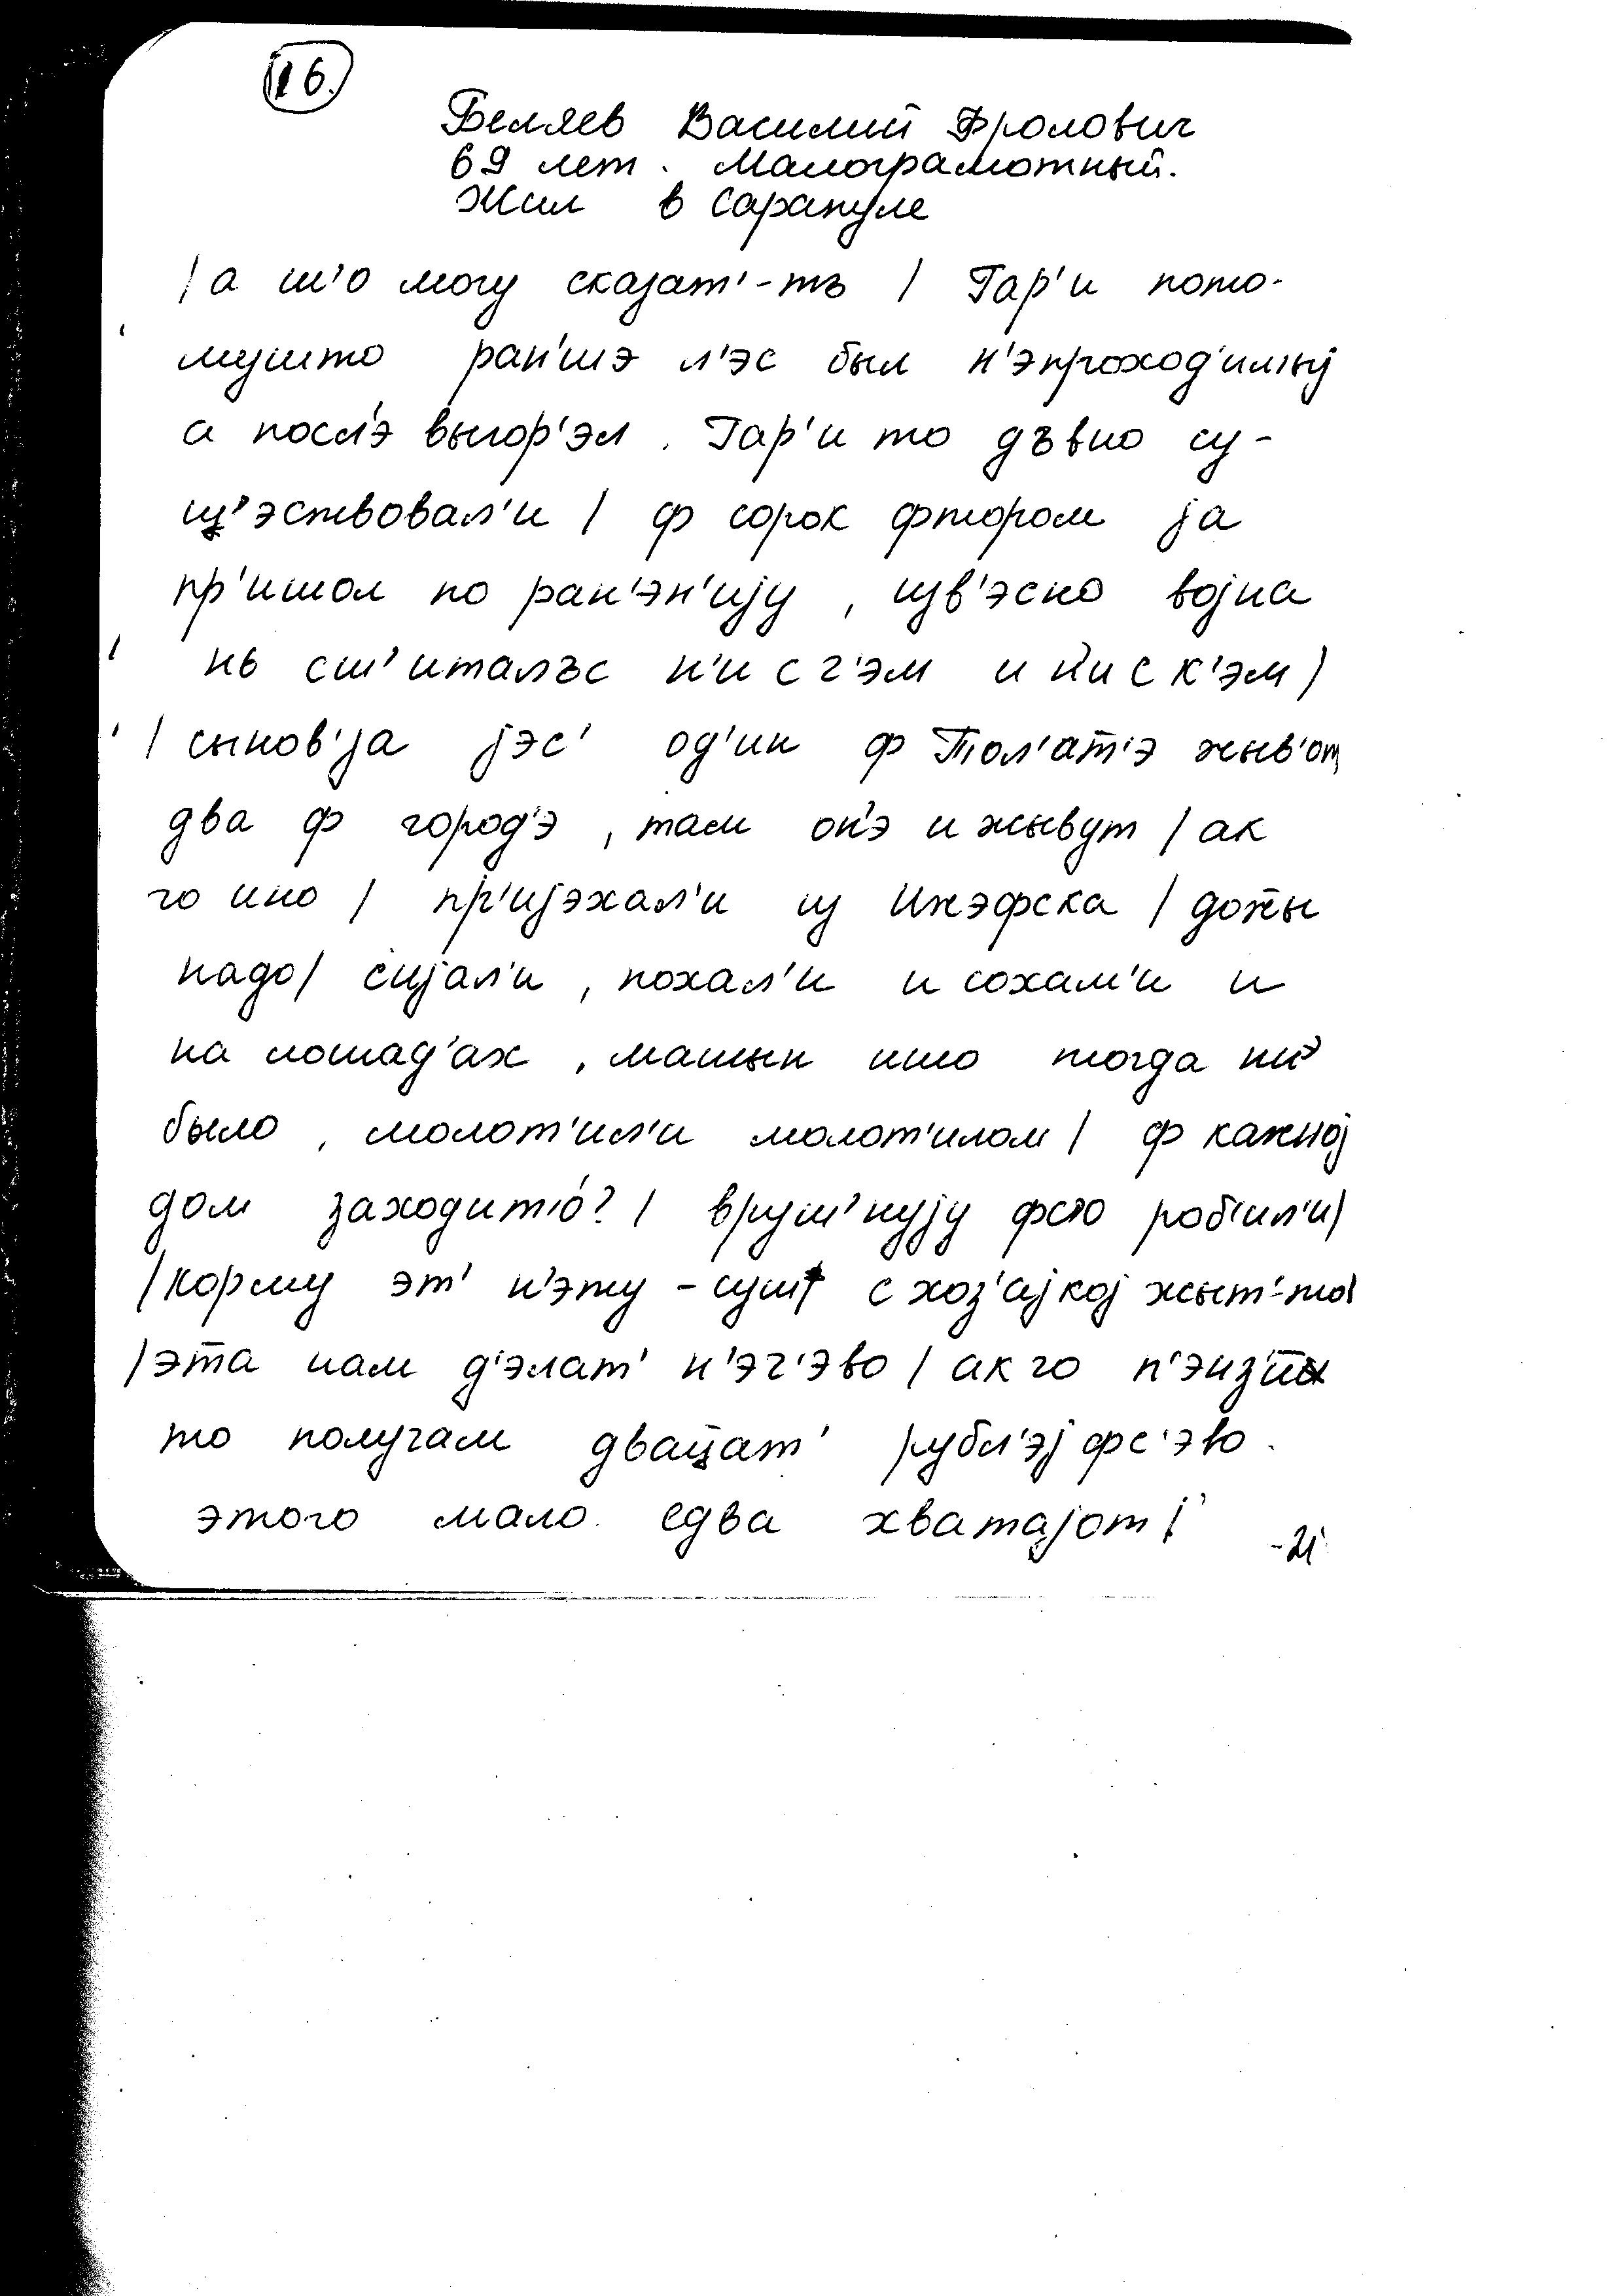 16.
Беляев Василий Фролович
69 лет. Малограмотный.
Жил в Сарапуле
/ а ш'о могу сказат'-тъ / Гар'и пото-
мушто ран'шэ л'эс был н'эпроход'имыј
а посл'э выгор'эл. Гар'и то дъвно су-
щ'эствовал'и / ф сорок фтором ја
пр'ишол по ран'эн'ију, изв'эсно војна
нь сш'италъс н'и с г'эм и н'и с к'эм /
/ сынов'ја јэс' од'ин ф Тол'ат'э жыв'от
два ф город'э, там он'э и жывут / ак
го ино / пр'ијэхал'и из Ижэфска / дожы
надо / с'ијал'и, похал'и и сохам'и и
на лошад'ах, машын ишо тогда н'э
было, молот'ил'и молот'илом / ф кажној
дом заходит'о? / вруш'нују фс'о роб'ил'и /
/ корму эт' н'эту - с хоз'ајкој жыт'-то /
/ эта нам д'элат' н'эг'эво / ак го п'энз'ии
то получам двац̄ат' рубл'эј фс'эво.
этого мало. едва хватајот /
-21